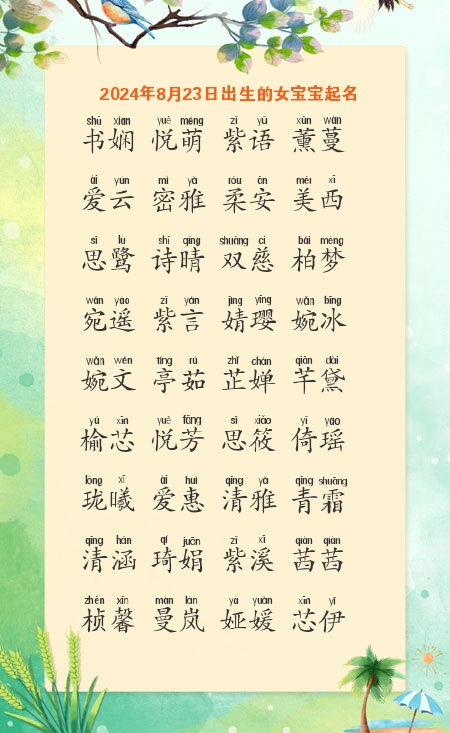 2024年8月23日出生的女宝宝起名
shū xián yuè méng zǐ yǔ xūn wàn
书娴 悦萌 紫语 薰蔓
ài yún mì yǎ róu ān měi xī
爱云 密雅 柔安 美西
sī lù shī qíng shuāng cí bái mèng
思鹭 诗晴 双慈 柏梦
wǎn yáo zǐ yán jìng yīng wǎn bīng
宛遥 紫言 婧璎 婉冰
wǎn wén tíng rú zhǐ chán qiān dài
婉文 亭茹 芷婵 芊黛
yú xīn yuè fāng sī xiǎo yǐ yáo
榆芯 悦芳 思筱 倚瑶
lóng xī ài huì qīng yǎ qīng shuāng
珑曦 爱惠 清雅 青霜
qīng hán qí juān zǐ xī qiàn qiàn
清涵 琦娟 紫溪 茜茜
zhēn xīn màn lán yà yuán xīn yī
桢馨 曼岚 娅媛 芯伊